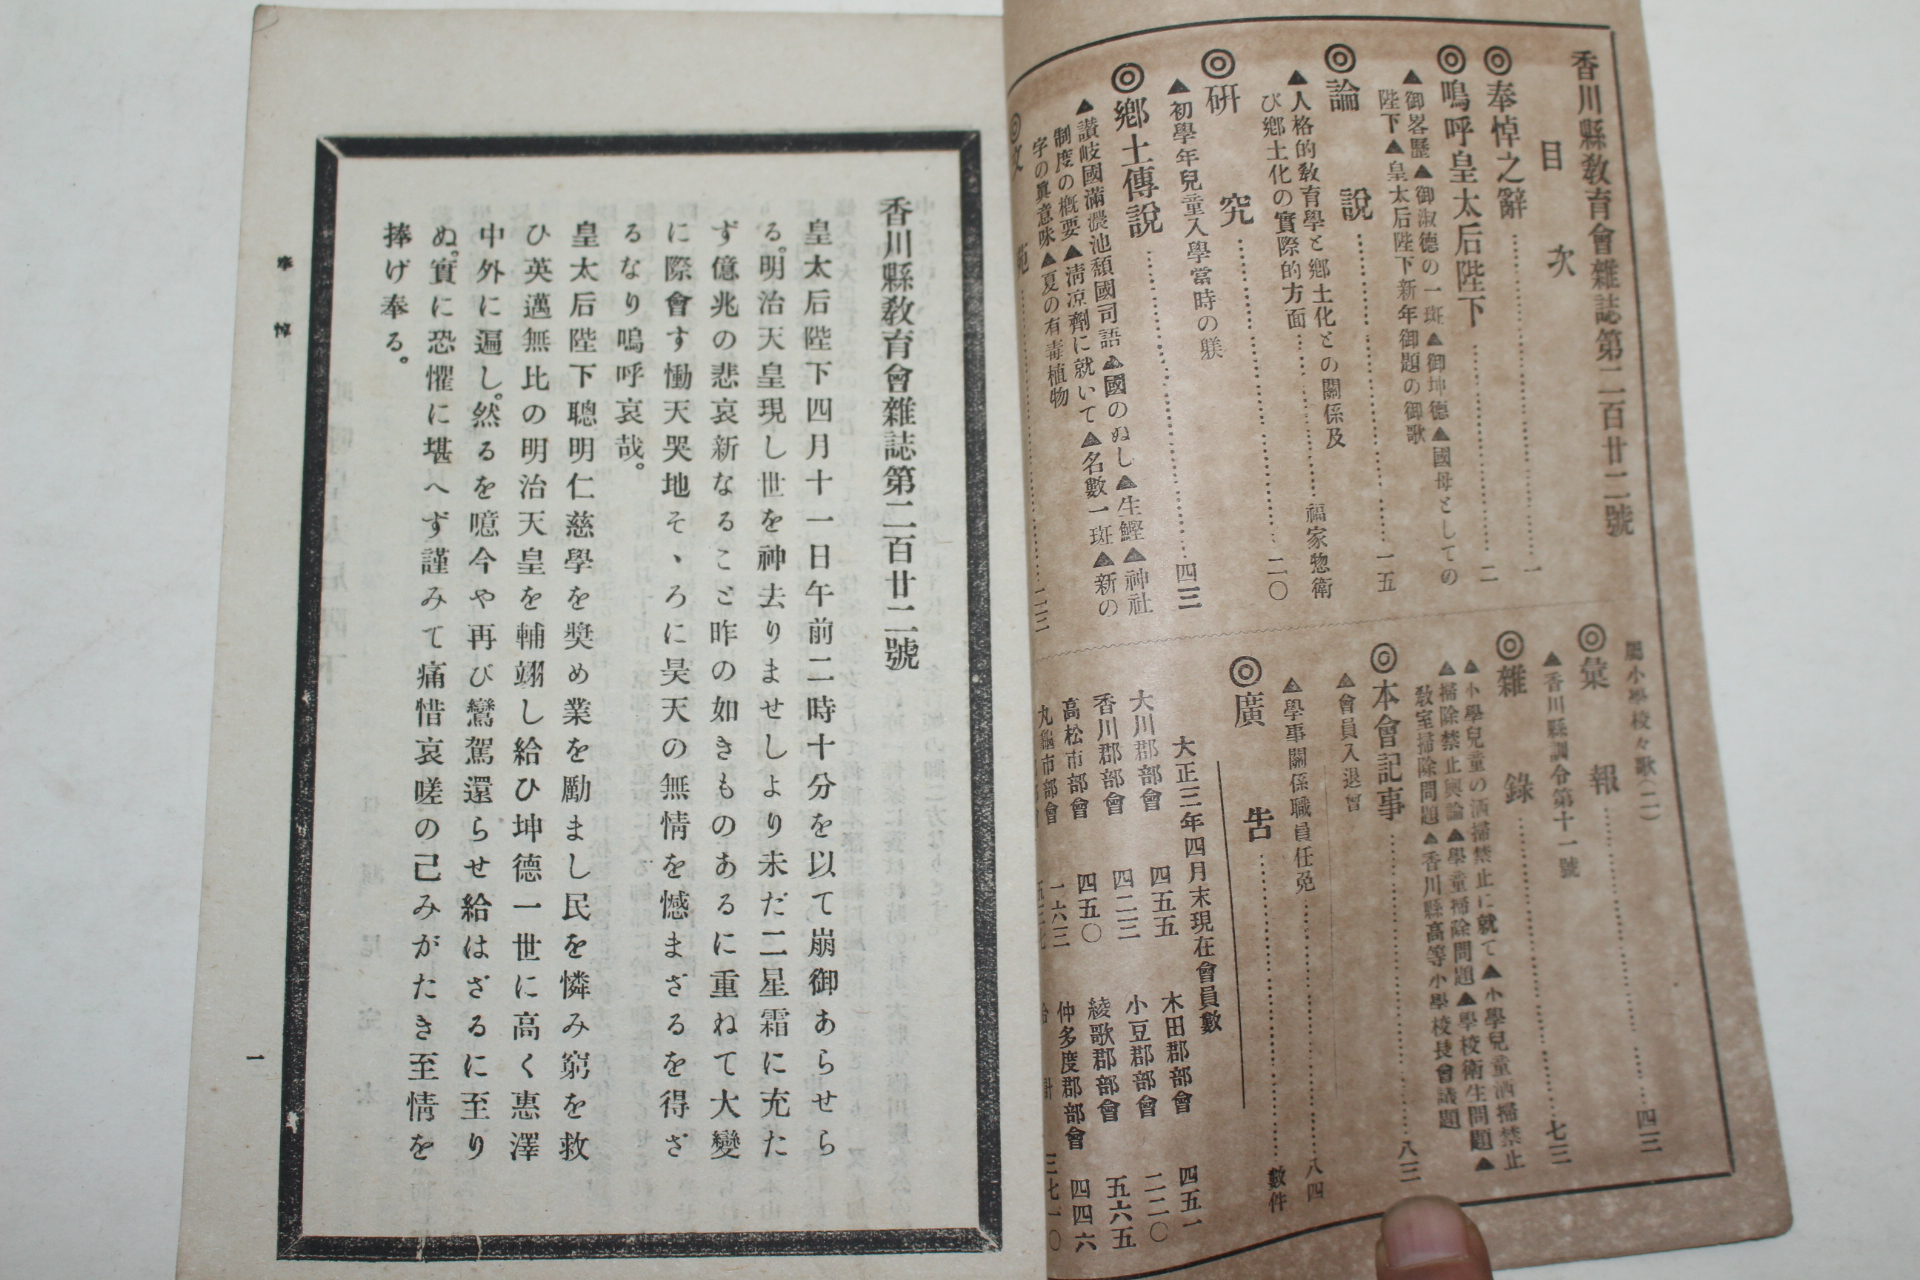 香川縣敎育會雜誌第二百廿二號
目次
◎奉悼之辭…………一
◎嗚呼皇太后陛下…………二
▲御畧歷▲御淑德の一斑▲御坤德▲國母としての
陛下▲皇太后陛下新年御題の御歌
◎論說…………一五
▲人格的敎育學と鄕土化との關係及
び鄕土化の實際的方面…………福家惣衛 二〇
◎硏究…………四三
▲初學年兒童入學當時の躾
◎鄕土傳說…………
▲讃岐國滿濃池頽國司語▲國のぬし▲生鰹▲神社
制度の槪要▲淸凉劑に就いて▲名數一斑▲新の
字の眞意味▲夏の有毒植物
小學校々歌(二)…………四三
◎彙報…………七三
▲香川縣訓令第十一號
◎雜錄
▲小學兒童の酒掃禁止に就て▲小學兒童酒掃禁止
▲掃除禁止輿論▲學童掃除問題▲學校衛生問題▲
敎室掃除問題▲香川縣高等小學校長會議題
◎本會記事…………八三
▲會員入退會
▲學事關係職員任免…………八四
◎廣告…………數件
大正三年四月末現在會員數
大川郡部會 四五五 木田郡部會 四五一
香川郡部會 四二三 小豆郡部會 二二〇
高松市部會 四五〇 綾歌郡部會 五六五
丸龜市部會 一六三 仲多度郡部會 四四六
合計 三七一〇
香川縣敎育會雜誌第二百廿二號
皇太后陛下四月十一日午前二時十分を以て崩御あらせら
る。明治天皇現し世を神去りませしより未だ二星霜に充た
ず億兆の悲哀新なること昨の如きものあるに重ねて大變
に際會す慟天哭地そゝろに昊天の無情を憾まざるを得ざ
るなり嗚呼哀哉。
皇太后陛下聰明仁慈學を奬め業を勵まし民を憐み窮を救
ひ英邁無比の明治天皇を輔翊し給ひ坤德一世に高く惠澤
中外に遍し。然るを噫今や再び鸞駕還らせ給はざるに至り
ぬ。實に恐懼に堪へず謹みて痛惜哀嗟の己みがたき至情を
捧げ奉る。
奉悼
一